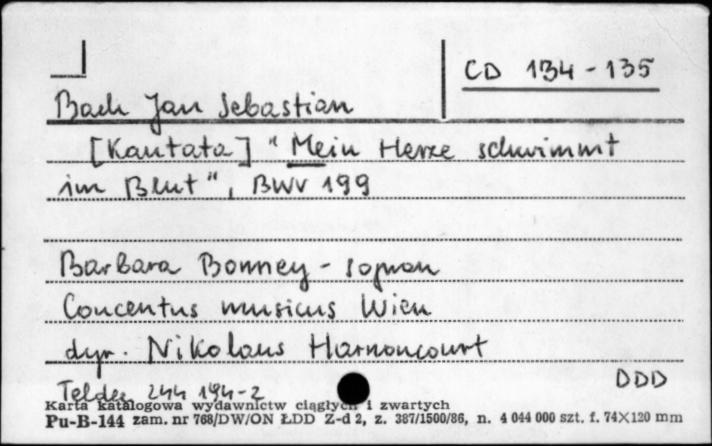 CD 134-135
Bach Jan Sebastian
[Kantata] "Mein Herze schwimmt
im Blut", BWV 199
Barbara Bonney - sopran
Concentus musicus Wien
dyr. Nikolaus Harnoncourt
DDD
Teldec 244 194-2
Karta katalogowa wydawnictw ciągłych i zwartych
Pu-B-144 zam. nr 768/DW/ON ŁDD Z-d 2, z. 387/1500/86, n. 4 044 000 szt. f. 74×120 mm